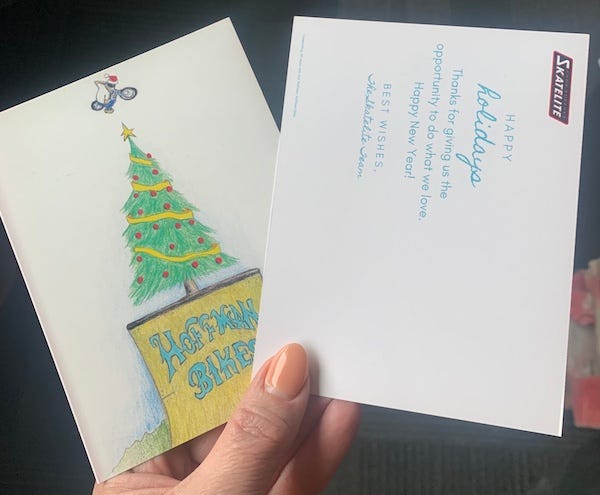 HOFFMAN
BIKES
SKATELITE
HAPPY
holidays
Thanks for giving us the
opportunity to do what we love.
Happy New Year!
BEST WISHES,
The Skatelite Team